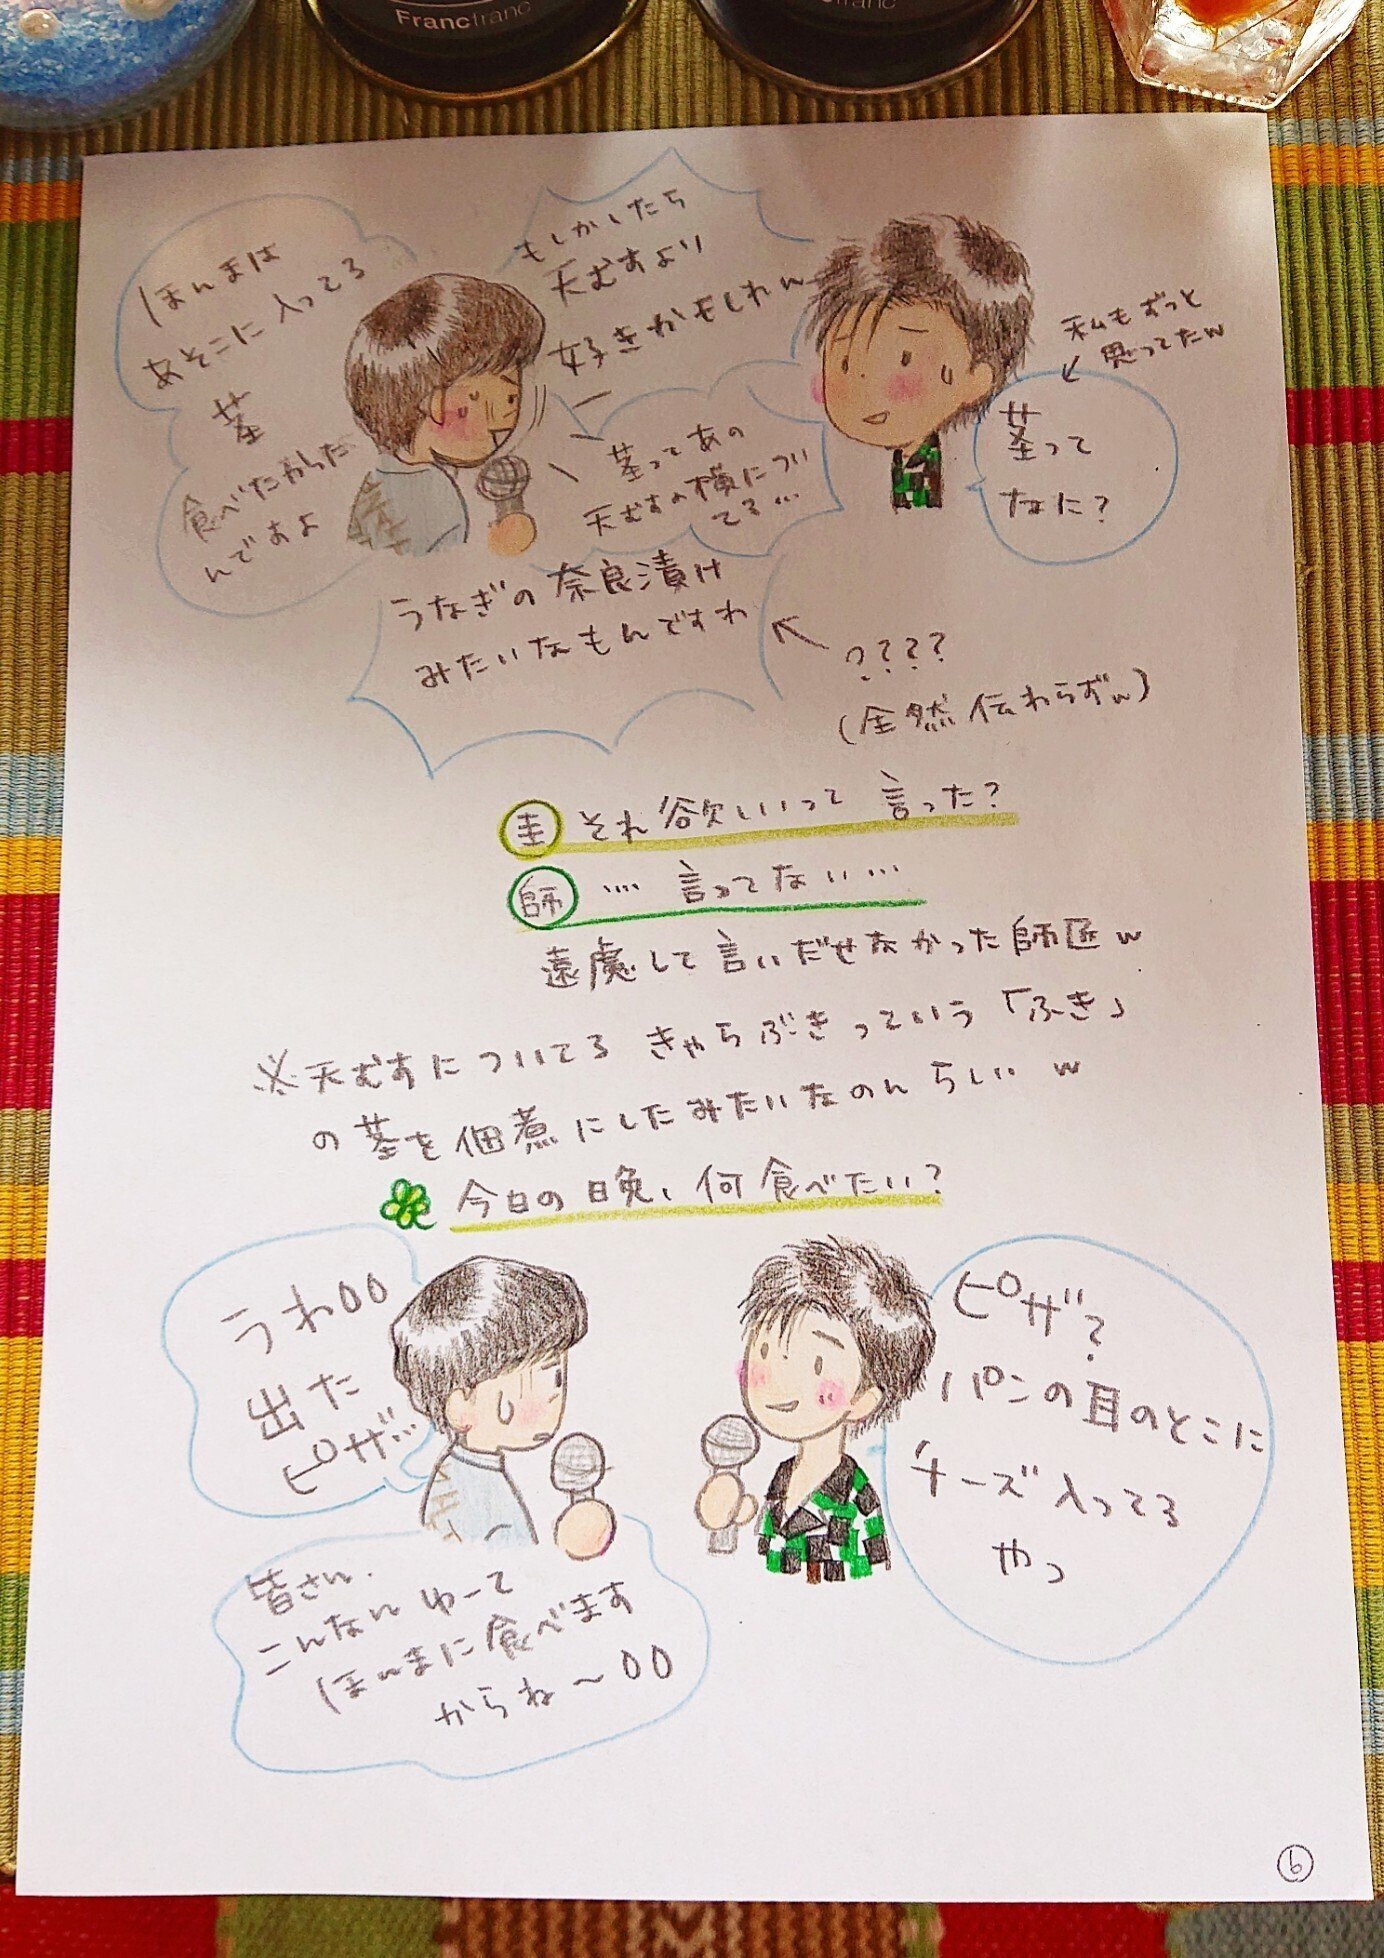 Francfranc
Francfranc
ほんまは
あそこに入ってる
茎
食べたかった
んですよ
もしかしたら
天むすより
好きかもしれん
茎ってあの
天むすの横につい
てる…
私もずっと
思ってたw
茎って
なに?
うなぎの奈良漬け
みたいなもんですわ
????
(全然伝わらずw)
圭 それ欲しいって言った?
師 …言ってない…
遠慮して言いだせなかった師匠w
※天むすについてる きゃらぶきっていう「ふき」
の茎を佃煮にしたみたいなのんらしいw
今日の晩、何食べたい?
うわ00
出た
ピザ…
ピザ?
パンの耳のとこに
チーズ入ってる
やつ
皆さん、
こんなんゆーて
ほんまに食べます
からね〜00
6